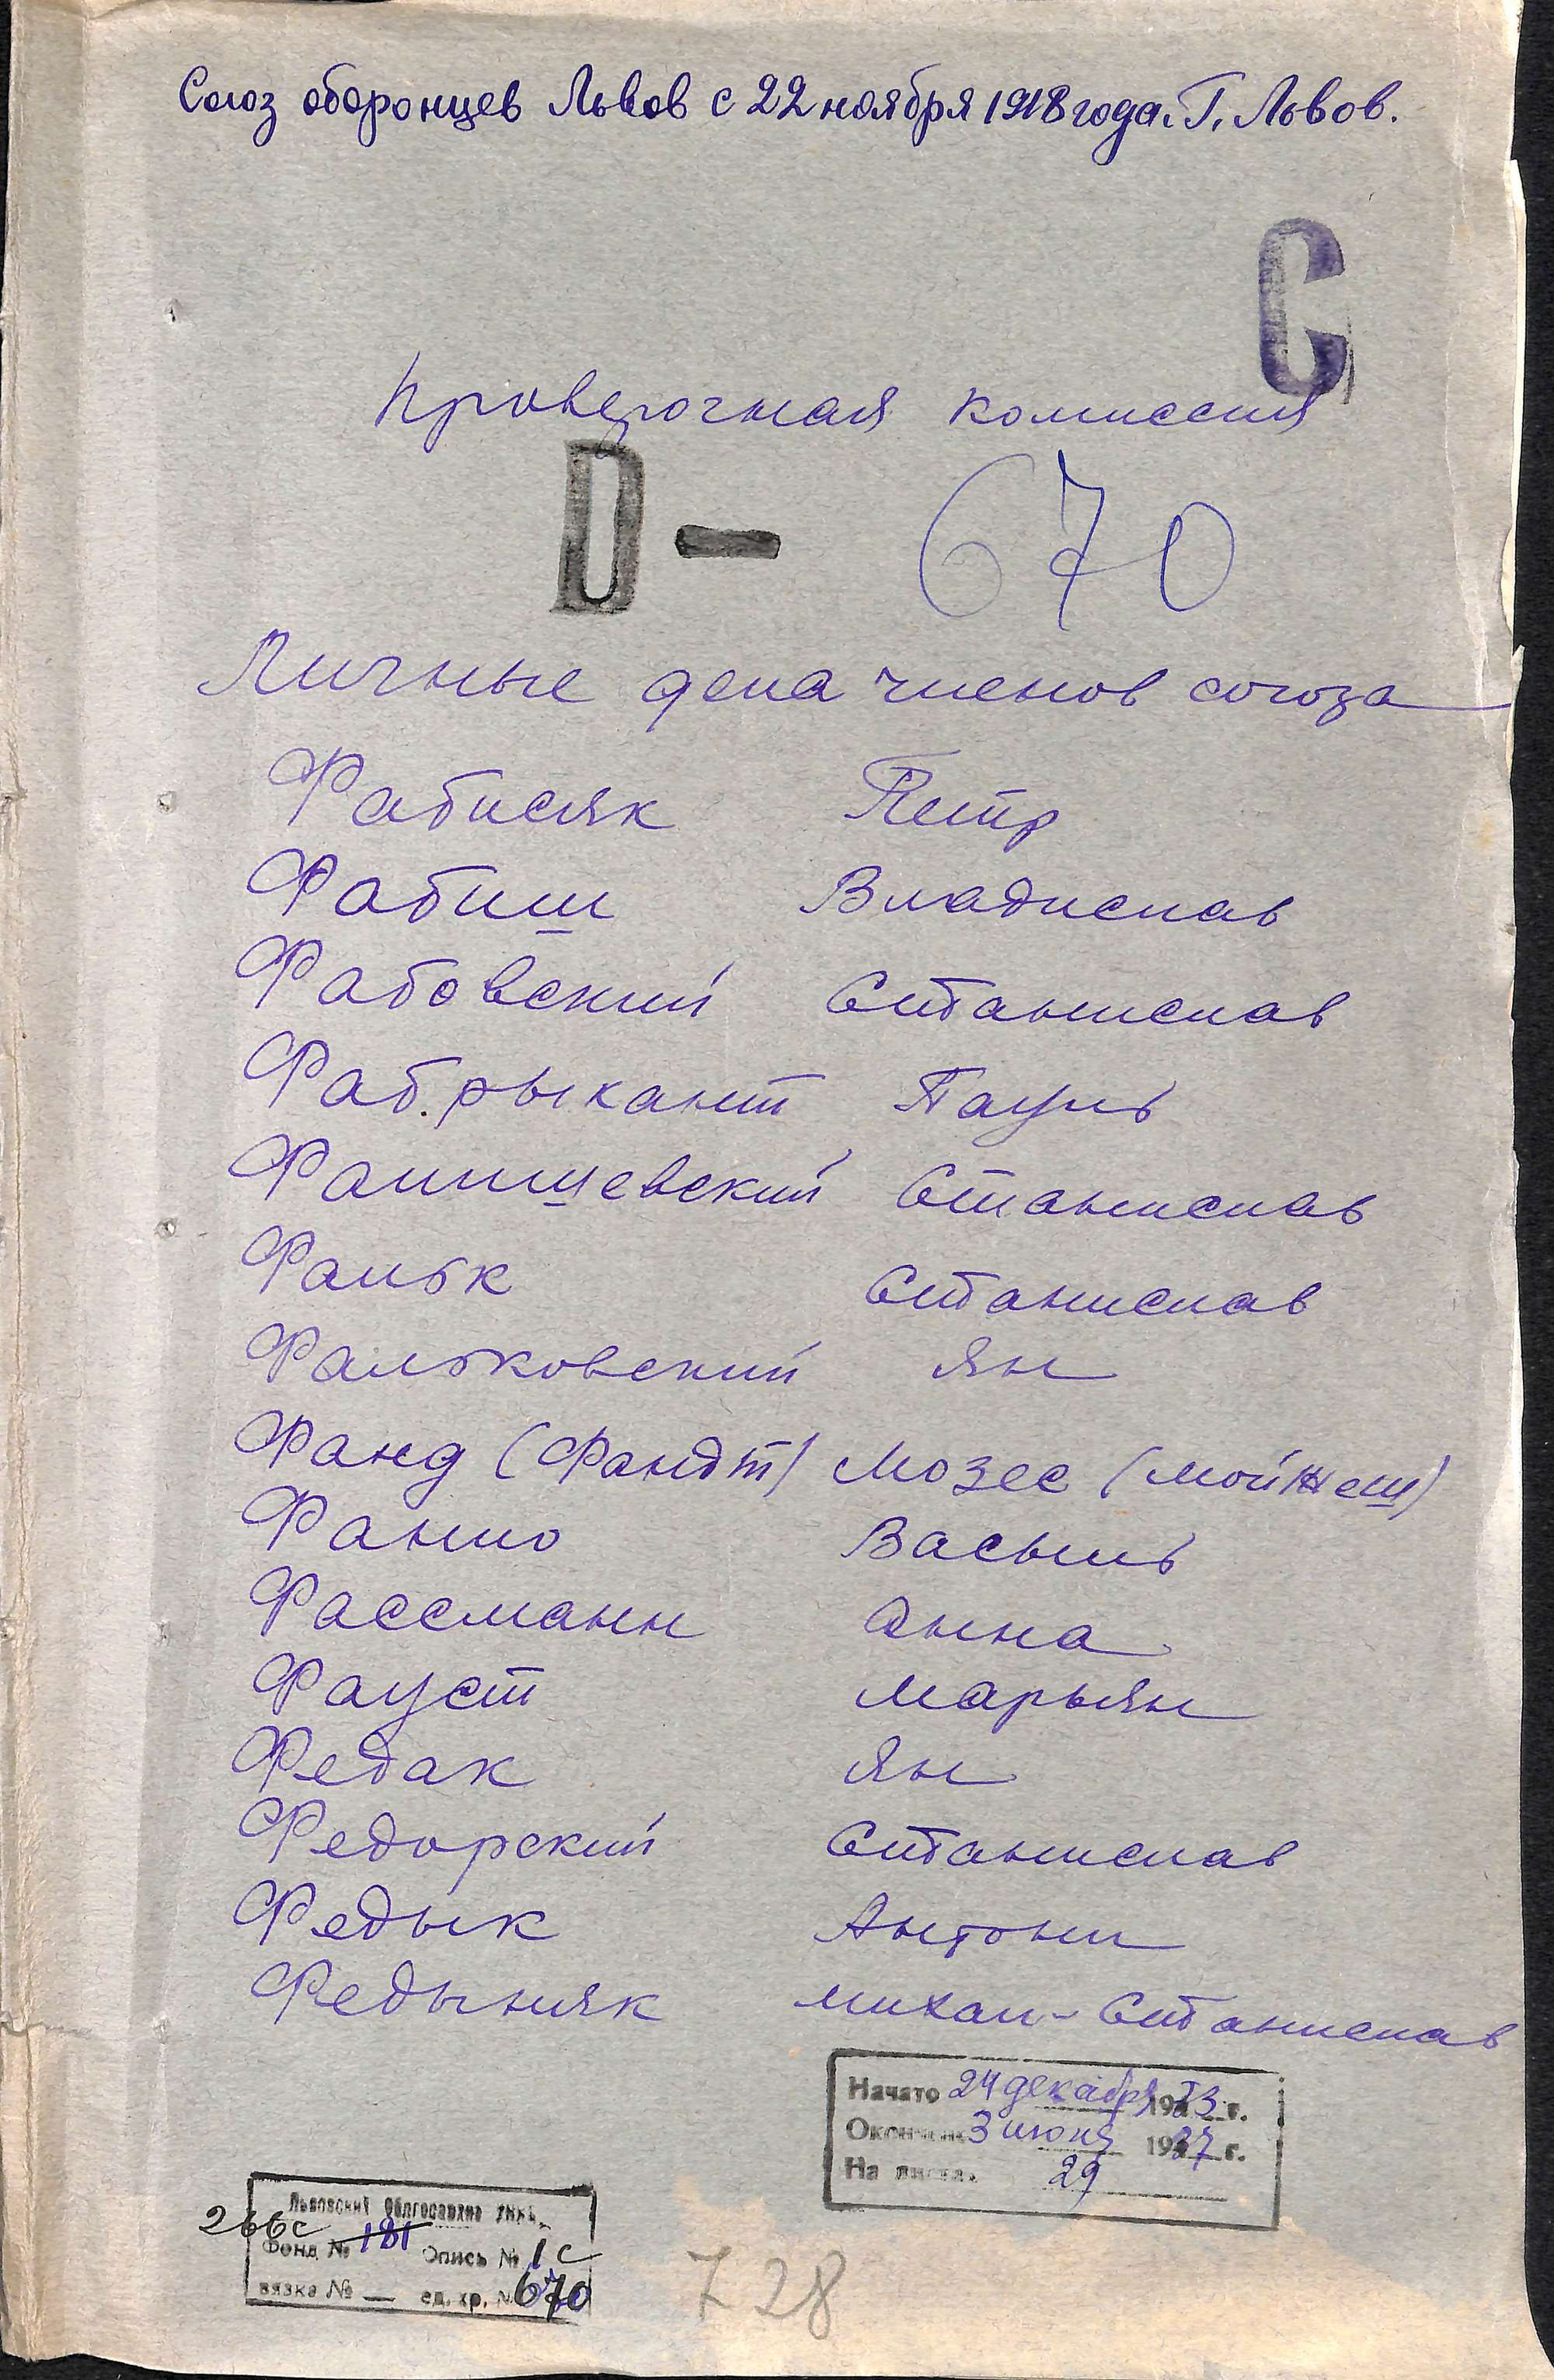 Союз оборонцев Львов с 22 ноября 1918 года. Г. Львов.
С
Проверочная комиссия
D — 670
Личные дела членов союза
Фабисяк Петр
Фабиш Владислав
Фабовский Станислав
Фабрыкант Пауль
Фалишевский Станислав
Фальк Станислав
Фальковский Ян
Фанд (Фандт) Мозес (Мойжеш)
Фанио Васыль
Фассманн Анна
Фауст Марьян
Федак Ян
Федорский Станислав
Федык Антони
Федыняк Михал-Станислав
Начато 24 декабря 1933 г.
Окончено 3 июня 1937 г.
На листах 29
Львовский Облгосархив
266с
Фонд № 181 Опись № 1с
вязка № — ед. хр. № 670
728